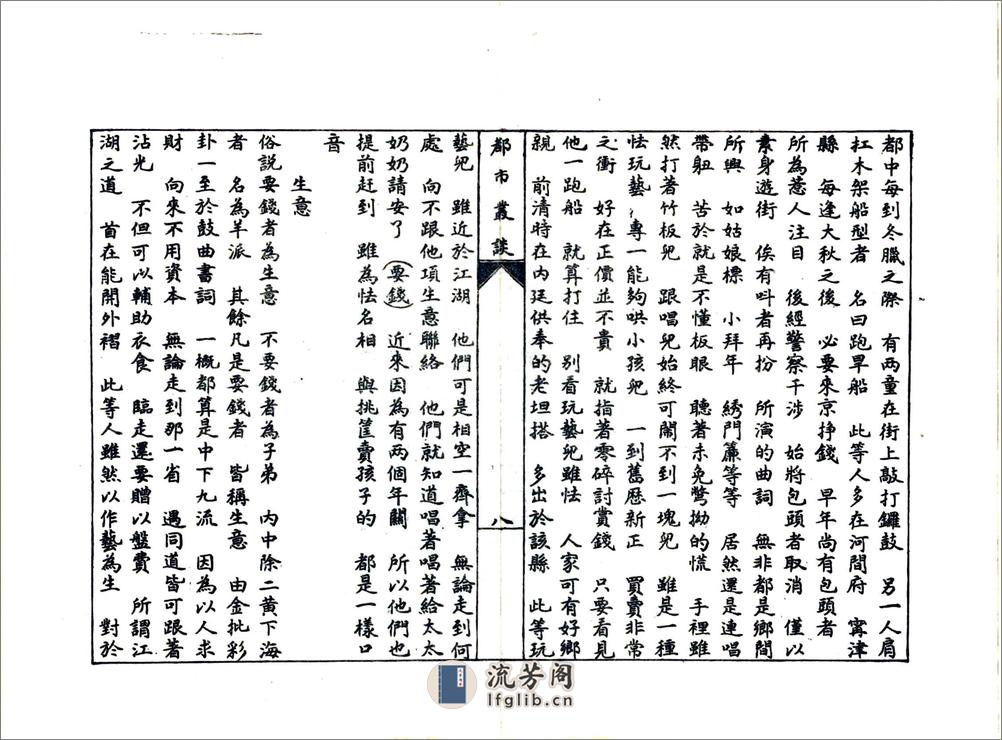 都中每到冬臘之際　有兩童在街上敲打鑼鼓　另一人肩
扛木架船型者　名曰跑旱船　此等人多在河間府　寗津
縣　每逢大秋之後　必要來京掙錢　早年尚有包頭者
所為惹人注目　後經警察干涉　始將包頭者取消　僅以
素身遊街　俟有呌者再扮　所演的曲詞　無非都是鄉間
所興　如姑娘標　小拜年　綉門簾等等　居然還是連唱
帶扭　苦於就是不懂板眼　聽著未免彆拗的慌　手裡雖
然打著竹板兒　跟唱兒始終可鬧不到一塊兒　雖是一種
怯玩藝　專一能夠哄小孩兒　一到舊歷新正　買賣非常
之衝　好在正價並不貴　就指著零碎討賞錢　只要看見
他一跑船　就算打住　別看玩藝兒雖怯　人家可有好鄉
親　前清時在内廷供奉的老坦搭　多出於該縣　此等玩
都市叢談
八
藝兒　雖近於江湖　他們可是相空一齊拿　無論走到何
處　向不跟他項生意聯絡　他們就知道唱著唱著給太太
奶奶請安了（要錢）近來因為有兩個年關　所以他們也
提前赶到　雖為怯名相　與挑筐賣孩子的　都是一樣口
音
生意
俗說要錢者為生意　不要錢者為子弟　内中除二黃下海
者　名為羊派　其餘凡是要錢者　皆稱生意　由金批彩
卦一至於鼓曲書詞　一概都算是中下九流　因為以人求
財　向來不用資本　無論走到那一省　遇同道皆可跟著
沾光　不但可以輔助衣食　臨走還要贈以盤費　所謂江
湖之道　首在能開外褶　此等人雖然以作藝為生　對於
流芳阁
lfglib.cn